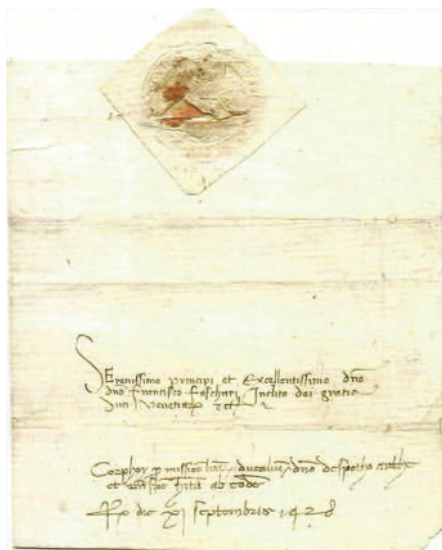 Serenissimo principi et Excellentissimo dno
dno Francisco Foschari Inclito dei gratia
duci Venetiaꝝ
Corphoy ꝑ missioē ducaliū dno despotho
et ab eodē
die septembris 1428